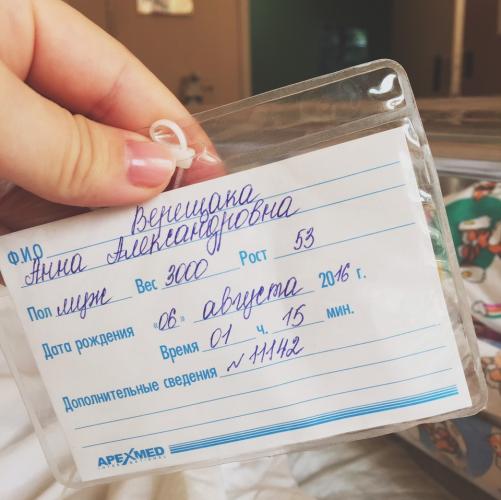 Верещака
Ф.И.О Анна Александровна
Пол муж Вес 3000 Рост 53
Дата рождения «06» августа 2016 г.
Время 01 ч. 15 мин.
Дополнительные сведения №11142
APEXMED